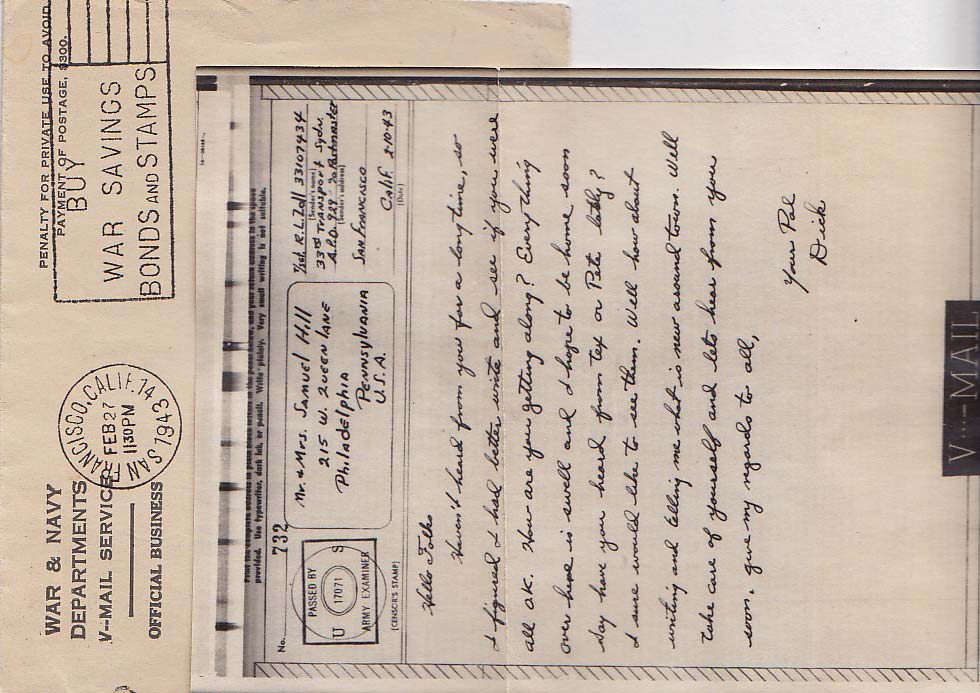 WAR & NAVY
DEPARTMENTS
V--MAIL SERVICE
OFFICIAL BUSINESS
SAN FRANCISCO, CALIF. 14
FEB 27
1130 PM
1943
PENALTY FOR PRIVATE USE TO AVOID
PAYMENT OF POSTAGE, $300.
BUY
WAR SAVINGS
BONDS AND STAMPS
Print the complete address in plain letters in the panel below, and your return address in the space
provided. Use typewriter, dark ink, or pencil. Write plainly. Very small writing is not suitable.
No. 732
PASSED BY
U 17071 S
ARMY EXAMINER
(CENSOR'S STAMP)
Mr. & Mrs. Samuel Hill
215 W. Queen Lane
Philadelphia
Pennsylvania
U.S.A.
R.L. Zoll 33107434
(Sender's name)
33rd Transport Sqdn
(Sender's address)
A.P.O. 929 Postmaster
San Francisco
Calif. 2-10-43
(Date)
Hello Folks
Haven't heard from you for a long time, so
I figured I had better write and see if you were
all O.K. How are you getting along? Everything
over here is swell and I hope to be home soon
Say have you heard from Tex or Pete lately?
I sure would like to see them. Well how about
writing and telling me what is new around town. Well
take care of yourself and lets hear from you
soon. give my regards to all,
Your Pal
Dick
V--MAIL